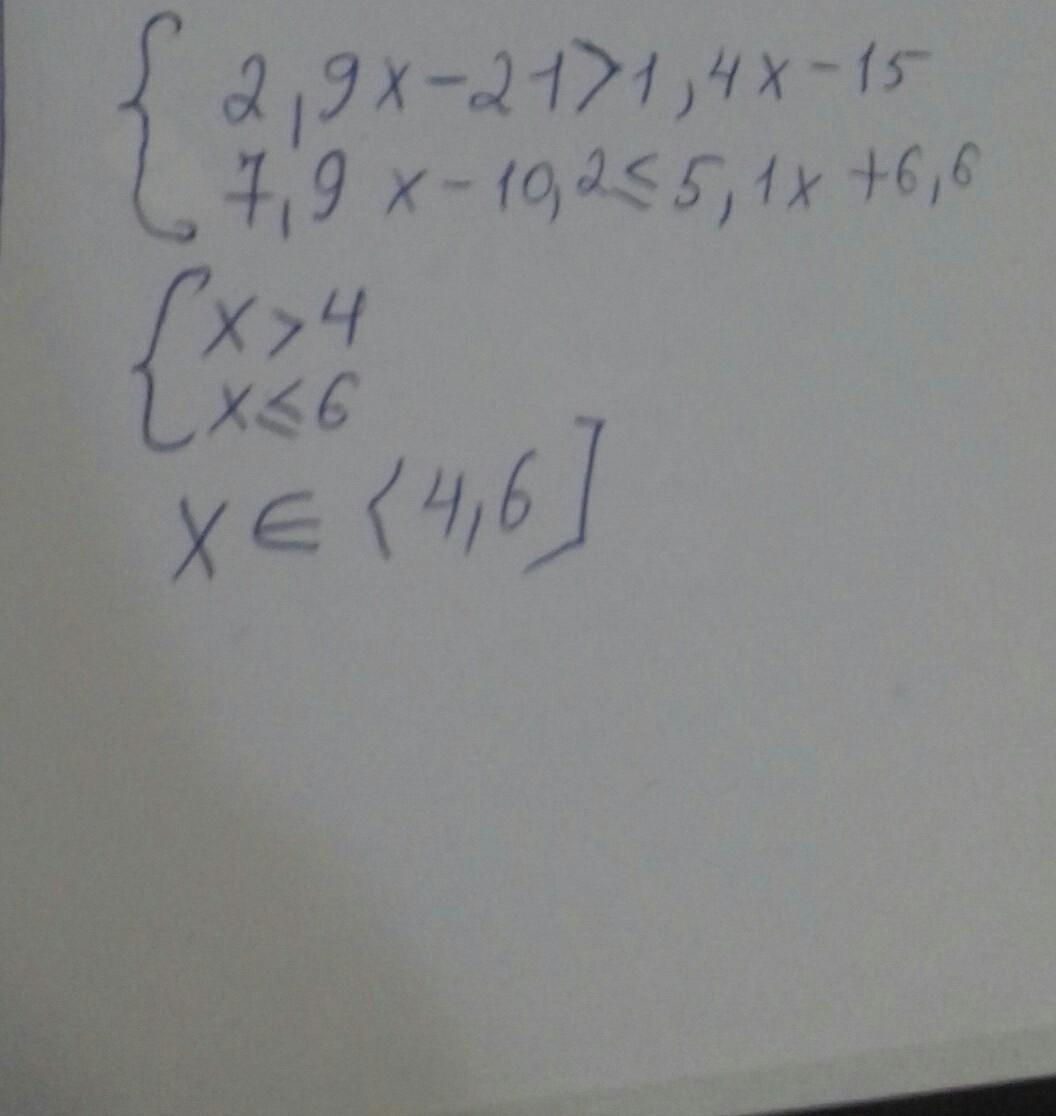 { 2,9x-21>1,4x-15
7,9x-10,2≤5,1x+6,6
{ x>4
x≤6
x∈⟨4,6]